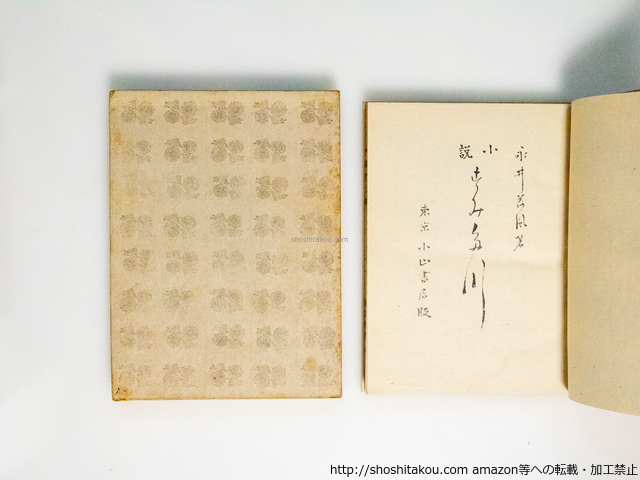 永井荷風著
小説
すみだ川
東京 小山書店版
shoshitakou.com
http://shoshitakou.com amazon等への転載・加工禁止